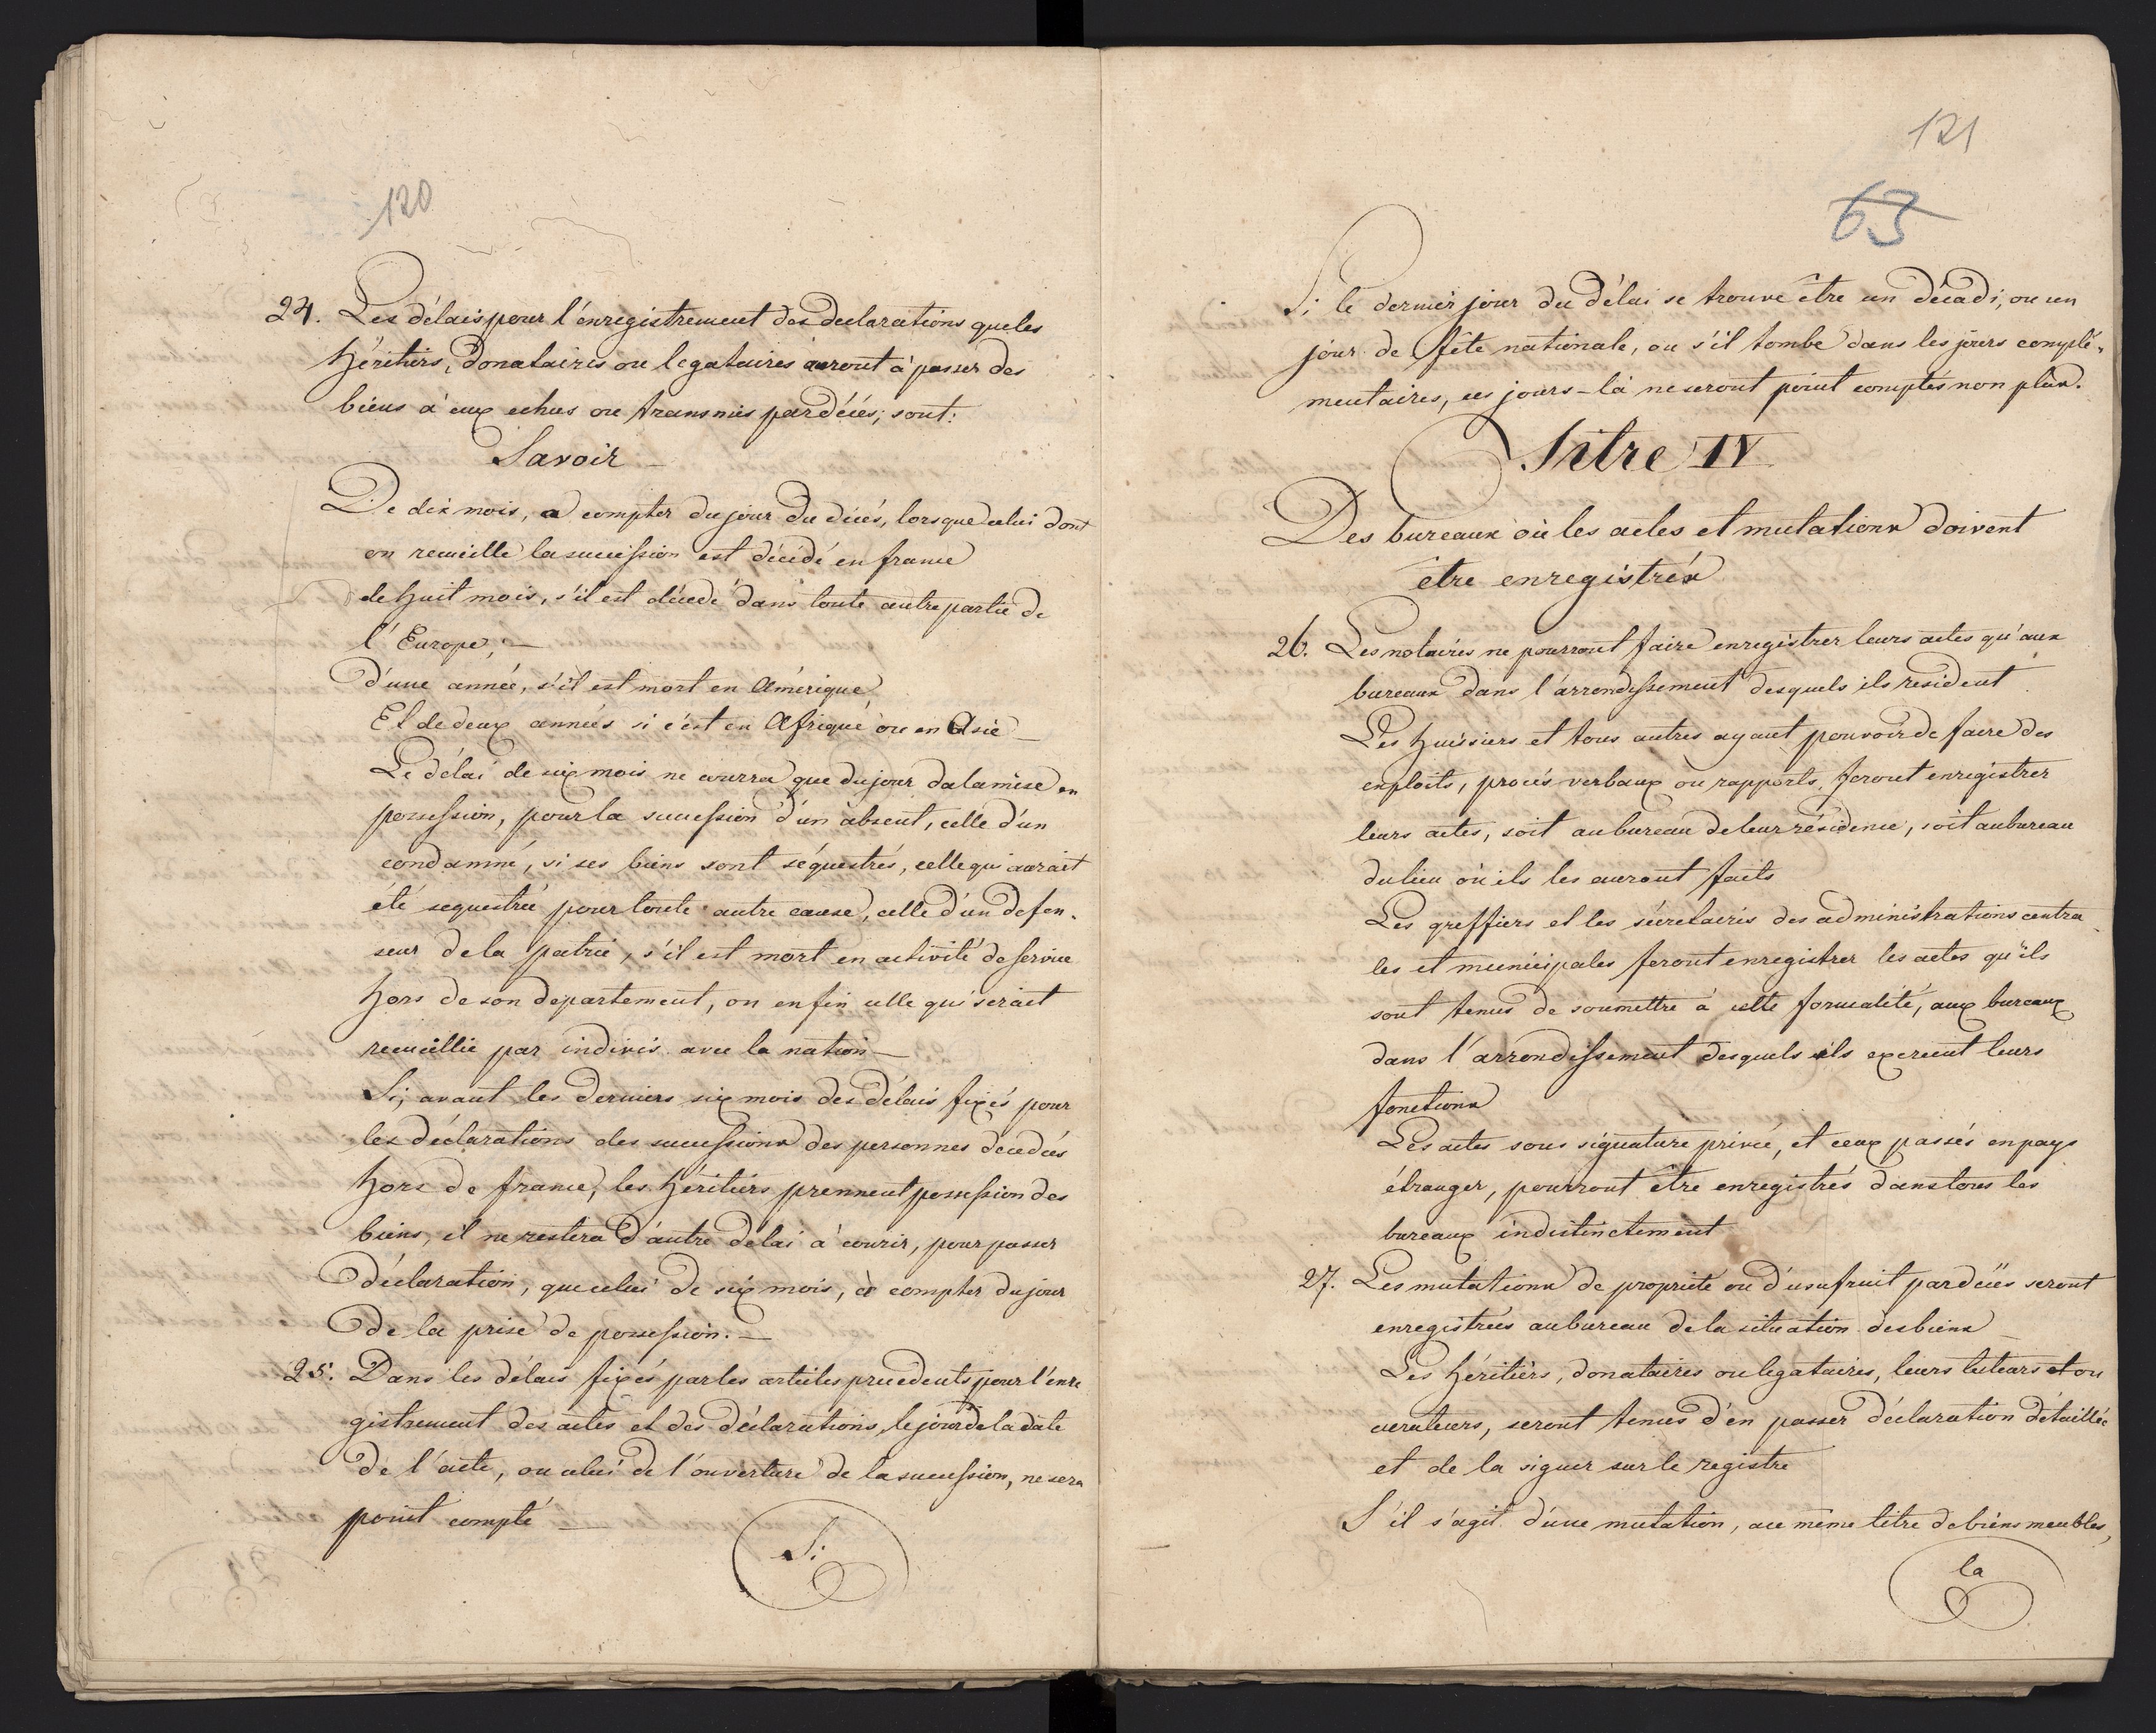 120
24. Les délais pour l'enregistrement des declarations que les
héritiers, donataires ou legataires auront à passer des
biens à eux echus ou transmis par décés; sont:
Savoir
De dix mois, a compter du jour du décés, lorsque celui dont
on recueille la succession est décédé en france
de huit mois, s'il est décedé dans toute autre partie de
l'Europe;
d'une année, s'il est mort en Amérique
Et de deux années si c'est en Afrique ou en Asie
Le délai de six mois ne courra que du jour da la mise en
possession, pour la succession d'un absent, celle d'un
condamné, si ses biens sont séquestrés, celle qui aurait
été sequestrée pour toute autre cause, celle d'un defen-
seur de la patrie, s'il est mort en activité de service
hors de son departement, ou enfin celle qui serait
recueillie par indivis avec la nation
Si, avant les derniers six mois des délais fixés pour
les déclarations des successions des personnes décedées
hors de france, les héritiers prennent possession des
biens, il ne restera d'autre délai à courir, pour passer
déclaration, que celui de six mois, à compter du jour
de la prise de possession.
25. Dans les délais fixés par les articles precedents pour l'enre
gistrement des actes et des déclarations, le jour de la date
de l'acte, ou celui de l'ouverture de la succession, ne sera
point compté
Si
121
63
Si le dernier jour du délai se trouve être un décadi, ou un
jour de fête nationale, ou s'il tombe dans les jours complé-
mentaires, ces jours-là ne seront point comptés non plus.
Titre IV
Des bureaux où les actes et mutations doivent
etre enregistrés
26. Les notaires ne pourront faire enregistrer leurs actes qu'aux
bureaux dans l'arrondissement desquels ils resident
Les huissiers et tous autres ayant pouvoir de faire des
exploits, procés verbaux ou rapports, feront enregistrer
leurs actes, soit au bureau de leur résidence, soit au bureau
du lieu où ils les auront faits
Les greffiers et les sécretaires des administrations centra
les et municipales feront enregistrer les actes qu'ils
sont tenus de soumettre à cette formalité, aux bureaux
dans l'arrondissement desquels ils exercent leurs
fonctions
Les actes sous signature privée, et ceux passés en pays
étranger, pourront être enregistrés dans tous les
bureaux indistinctement
27. Les mutations de proprieté ou d'usufruit par décés seront
enregistrées au bureau de la situation des biens
Les héritiers, donataires ou legataires, leurs tuteurs et ou
curateurs, seront tenus d'en passer déclaration détaillée
et de la signer sur le registre
S'il s'agit d'une mutation, au même titre de biens meubles,
la